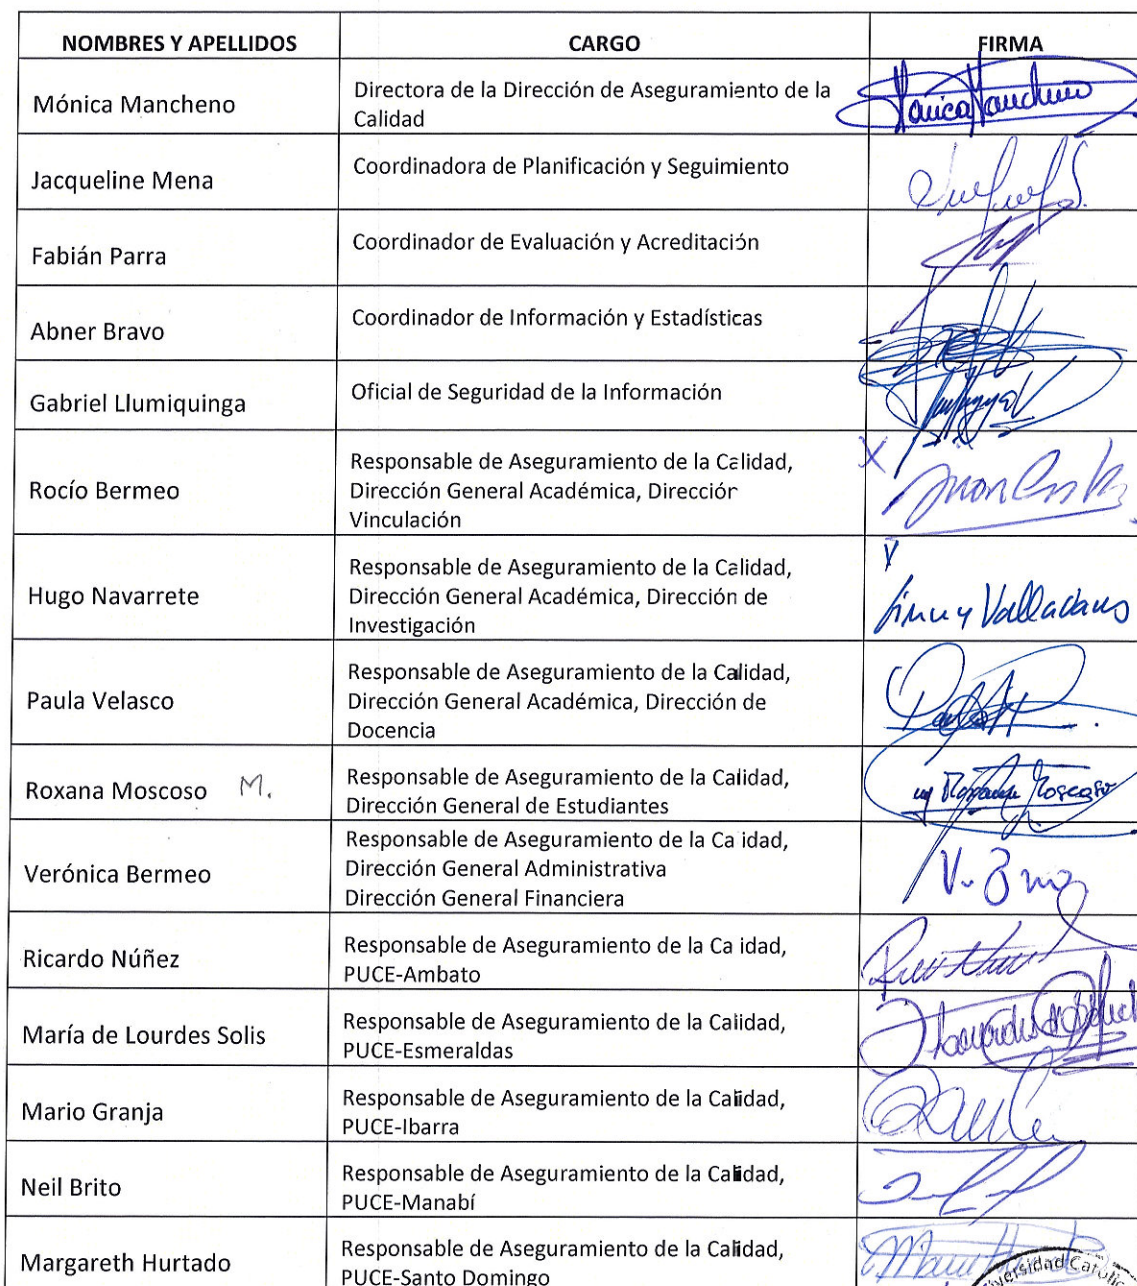 NOMBRES Y APELLIDOS CARGO FIRMA
Mónica Mancheno
Directora de la Dirección de Aseguramiento de la
Calidad
Monica Mancheno
Jacqueline Mena
Coordinadora de Planificación y Seguimiento
Fabián Parra
Coordinador de Evaluación y Acreditación
Abner Bravo
Coordinador de Información y Estadísticas
Gabriel Llumiquinga
Oficial de Seguridad de la Información
Rocío Bermeo
Responsable de Aseguramiento de la Calidad,
Dirección General Académica, Dirección
Vinculación
X
Hugo Navarrete
Responsable de Aseguramiento de la Calidad,
Dirección General Académica, Dirección de
Investigación
Paula Velasco
Responsable de Aseguramiento de la Calidad,
Dirección General Académica, Dirección de
Docencia
Roxana Moscoso M.
Responsable de Aseguramiento de la Calidad,
Dirección General de Estudiantes
Roxana Moscoso
Verónica Bermeo
Responsable de Aseguramiento de la Calidad,
Dirección General Administrativa
Dirección General Financiera
Ricardo Núñez
Responsable de Aseguramiento de la Calidad,
PUCE-Ambato
María de Lourdes Solis
Responsable de Aseguramiento de la Calidad,
PUCE-Esmeraldas
Mario Granja
Responsable de Aseguramiento de la Calidad,
PUCE-Ibarra
Neil Brito
Responsable de Aseguramiento de la Calidad,
PUCE-Manabí
Margareth Hurtado
Responsable de Aseguramiento de la Calidad,
PUCE-Santo Domingo